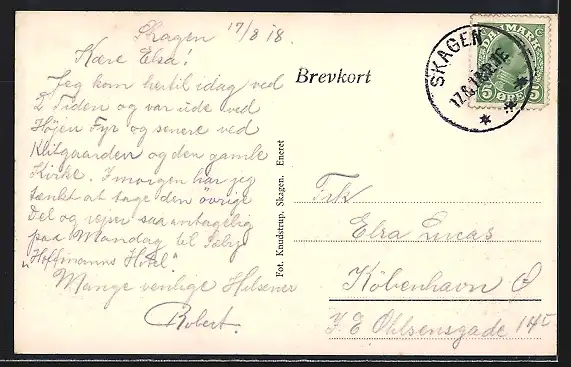 Skagen 17/8 18.
Kære Elsa!
Jeg kom hertil idag ved
2 Tiden og var ude ved
Højen Fyr og senere ved
Klitgaarden og den gamle
Kirke. I morgen har jeg
tænkt at tage den øvrige
Del og rejser saa antagelig
paa Mandag til Sæby
"Hoffmanns Hotel."
Mange venlige Hilsener
Robert.
Brevkort
Fot. Knudstrup, Skagen. Eneret
SKAGEN
17.8.18
DANMARK
5 ØRE 5
Frk
Elsa Lucas
København Ø
J. E. Ohlsensgade 14